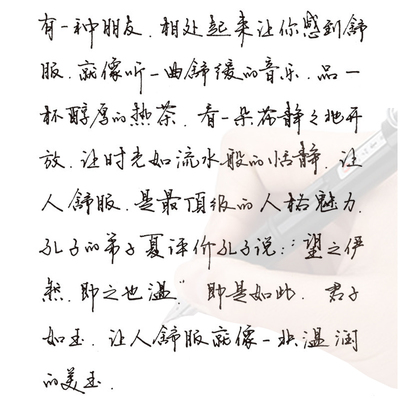 有一种朋友.相处起来让你感到舒
服.就像听一曲舒缓的音乐.品一
杯醇厚的热茶.看一朵花静静地开
放.让时光如流水般的恬静.让
人舒服.是最顶级的人格魅力.
孔子的弟子夏评价孔子说:"望之伊
然.即之也温."即是如此.君子
如玉.让人舒服就像一块温润
的美玉.